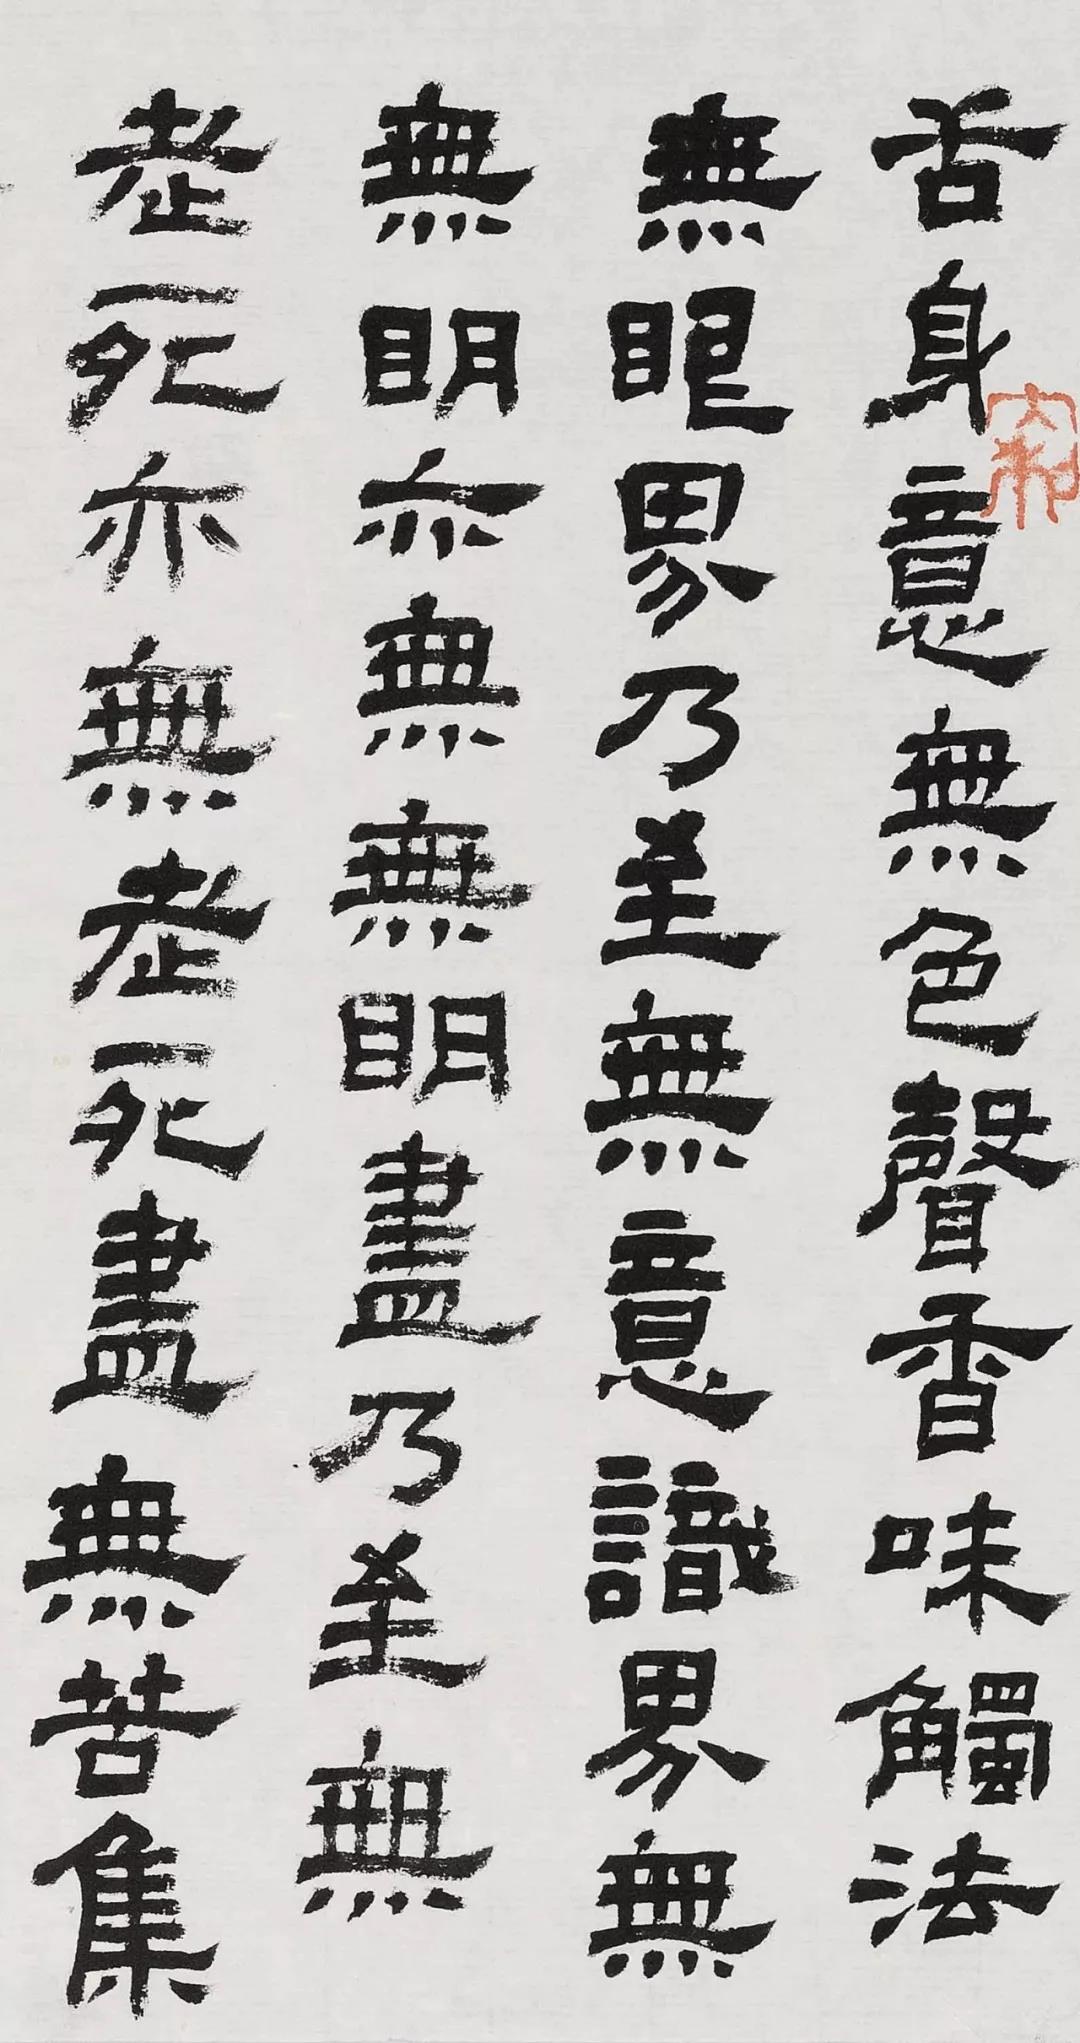 舌身意無色聲香味觸法
無眼界乃至無意識界無
無明亦無無明盡乃至無
老死亦無老死盡無苦集